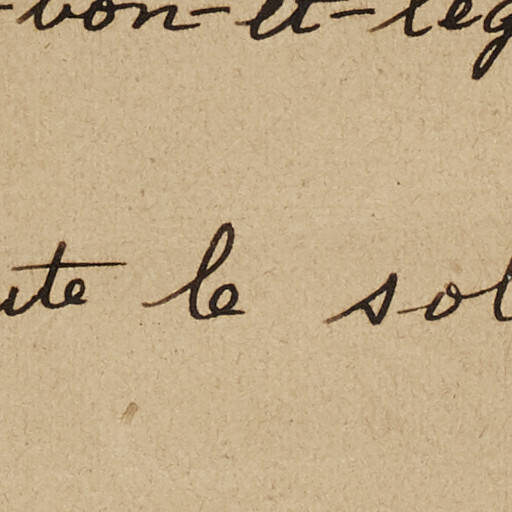 -bon-et-lég
ute le sol